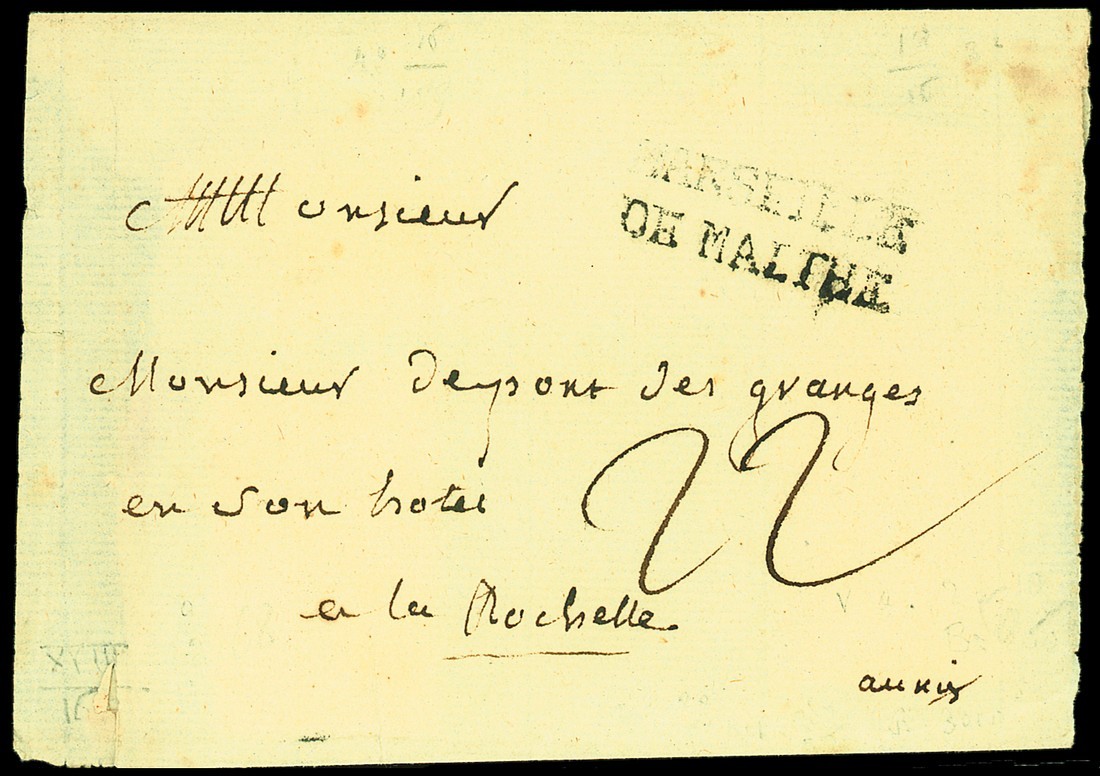 MARSEILLE
DE MALTHE
Monsieur
Monsieur Depont des granges
en son hotel
22
a la Rochelle
aunis